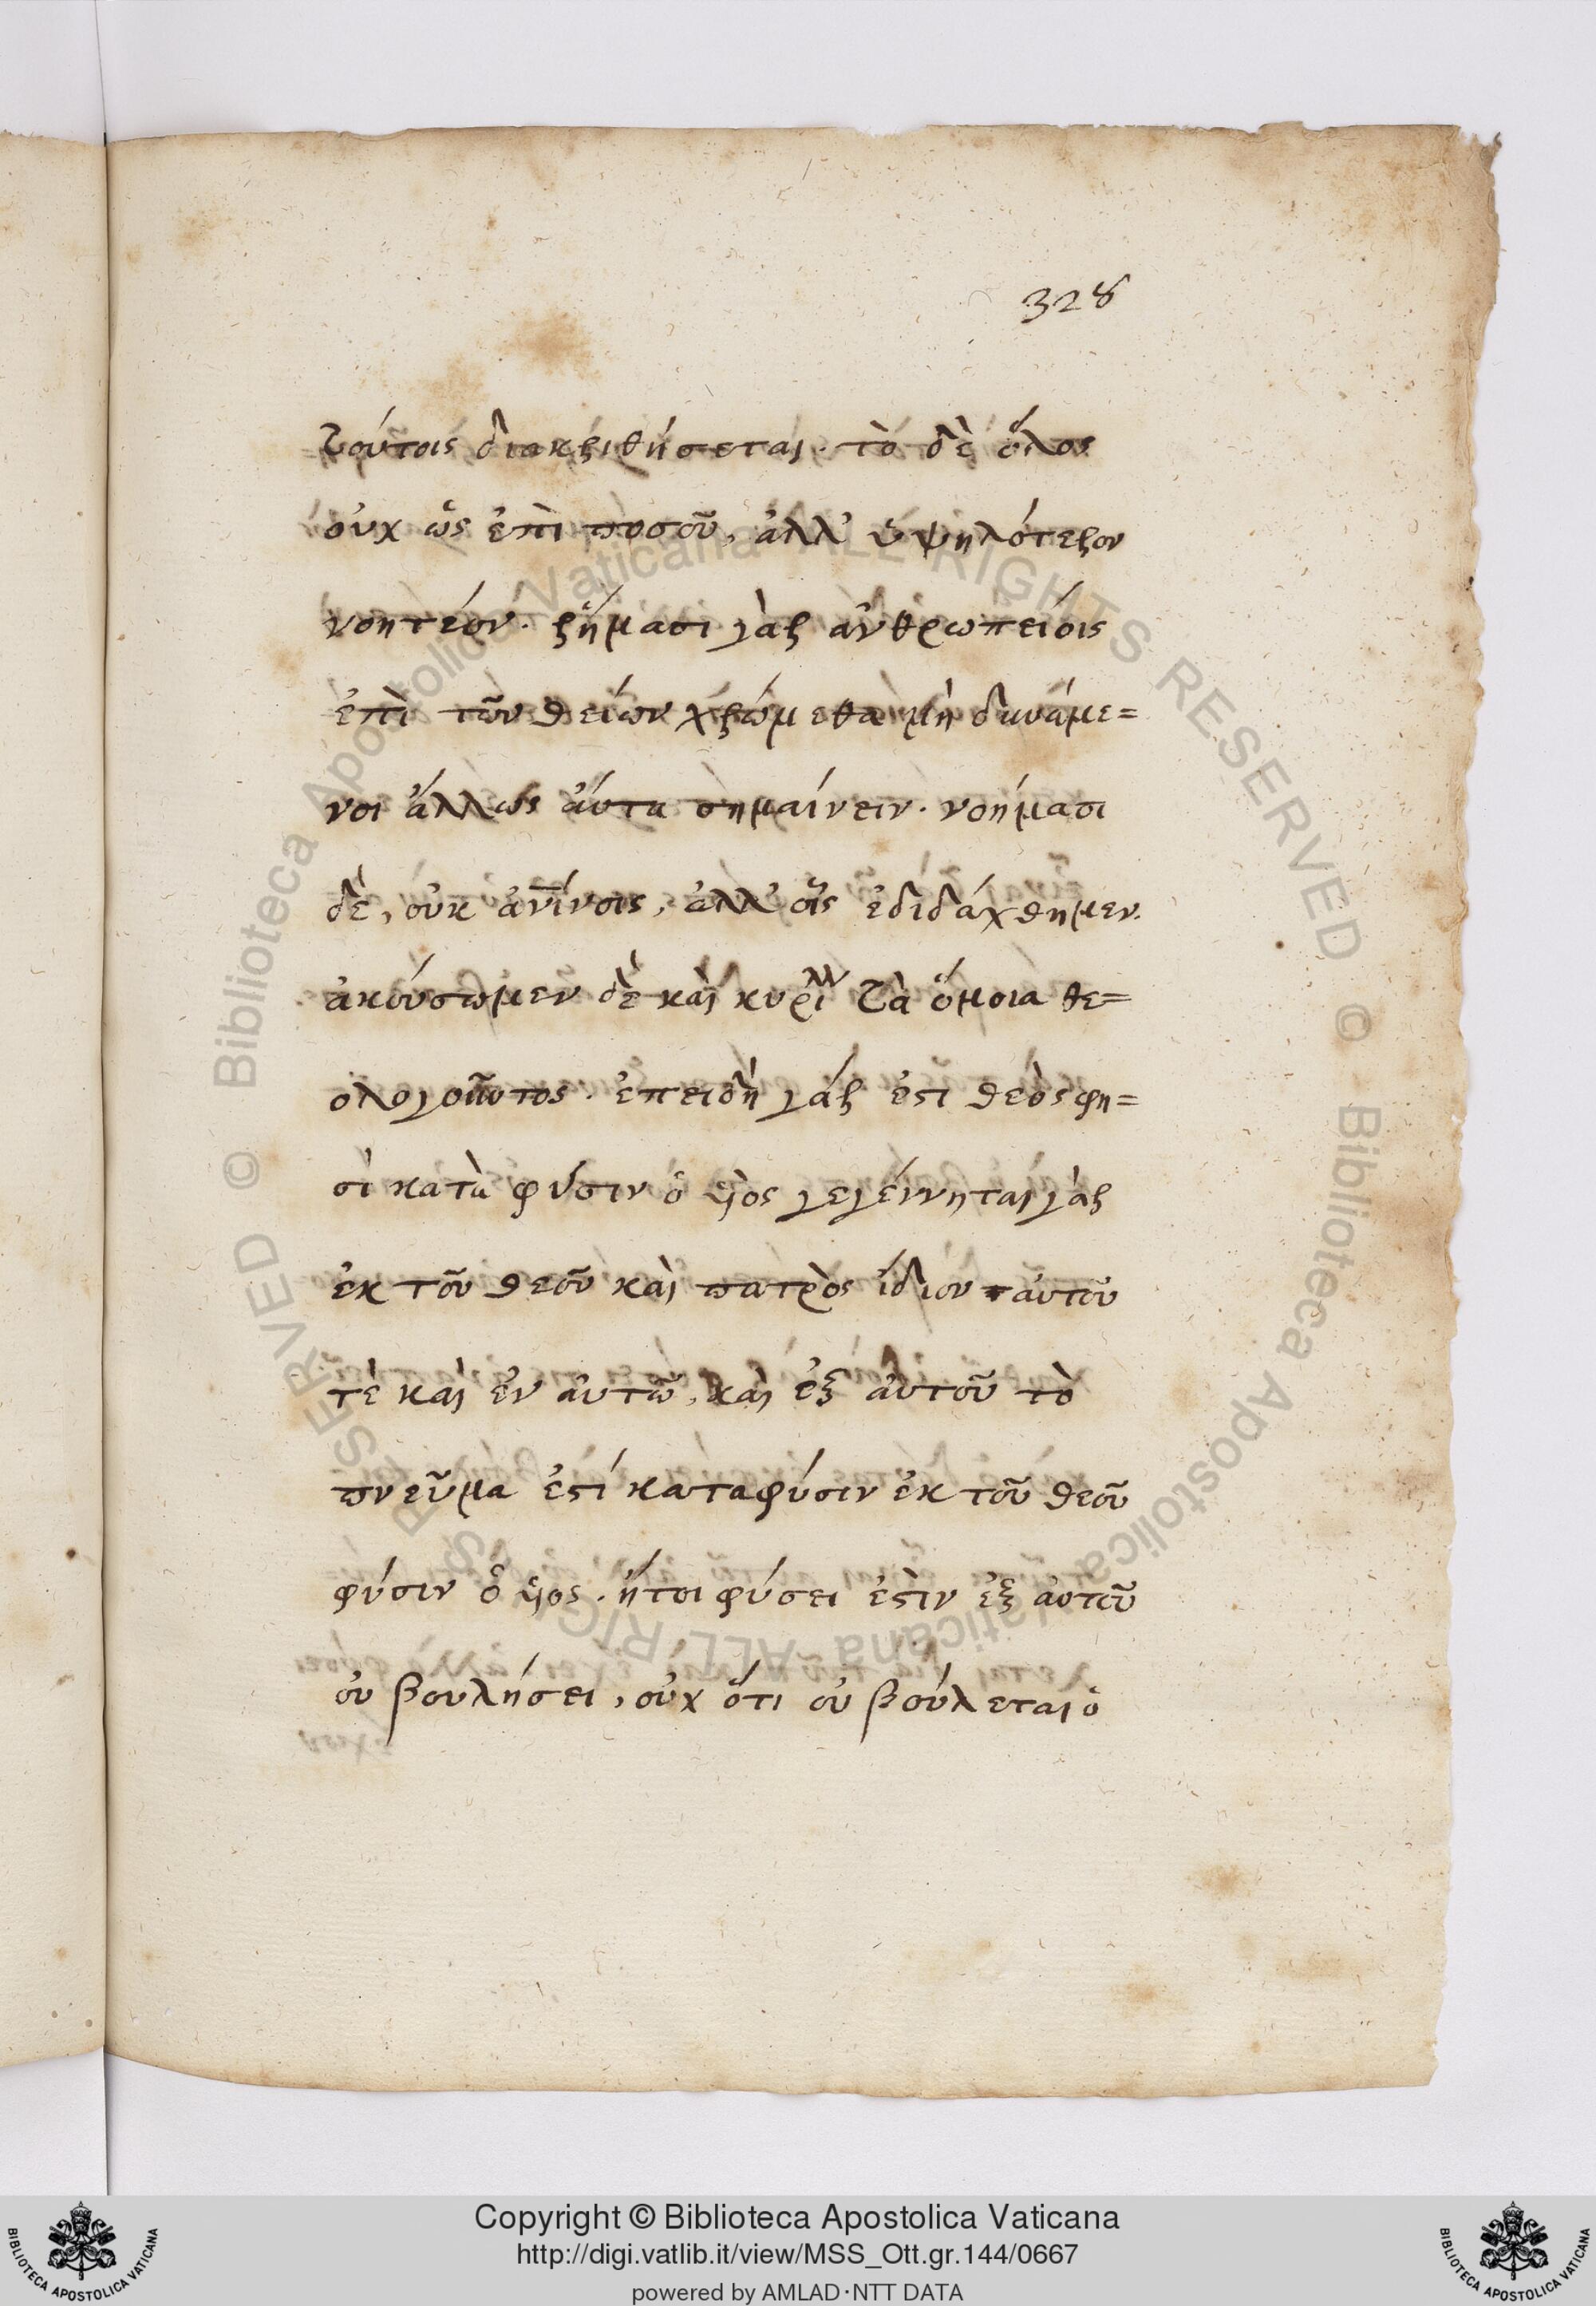 328
τούτοις διακριθήσεται. τὸ δὲ ὅλος
οὐχ ὡς ἐπὶ ποσοῦ, ἀλλ' ὑψηλότερον
νοητέον. ῥήμασι γὰρ ἀνθρωπείοις
ἐπὶ τῶν θείων χρώμεθα μὴ δυνάμε=
νοι ἄλλως αὐτὰ σημαίνειν. νοήμασι
δὲ, οὐκ ἀνίνοις, ἀλλ' οἷς ἐδιδάχθημεν.
ἀκούσωμεν δὲ καὶ κυρίλλ τὰ ὅμοια θε=
ολογοῦντος. ἐπειδὴ γάρ ἐστι θεὸς φη=
σὶ κατὰ φύσιν ὁ υἱὸς γεγέννηται γὰρ
ἐκ τοῦ θεοῦ καὶ πατρὸς ἴδιον αὐτοῦ
τὲ καὶ ἐν αὐτῶ, καὶ ἐξ αὐτοῦ τὸ
πνεῦμα ἐστί καταφύσιν ἐκ τοῦ θεοῦ
φύσιν ὁ υἱος. ἤτοι φύσει ἐστὶν ἐξ αὐτοῦ
οὐ βουλήσει, οὐχ ὅτι οὐ βούλεται ὁ
Copyright © Biblioteca Apostolica Vaticana
http://digi.vatlib.it/view/MSS_Ott.gr.144/0667
powered by AMLAD·NTT DATA
BIBLIOTECA APOSTOLICA VATICANA
BIBLIOTECA APOSTOLICA VATICANA
© Biblioteca Apostolica Vaticana ALL RIGHTS RESERVED
© Biblioteca Apostolica Vaticana ALL RIGHTS RESERVED